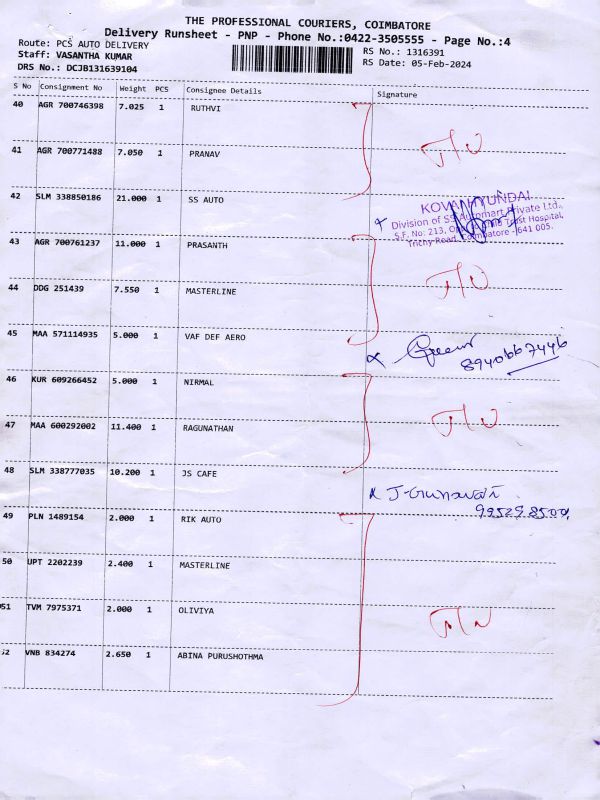 THE PROFESSIONAL COURIERS, COIMBATORE
Delivery Runsheet - PNP - Phone No.:0422-3505555 - Page No.:4
Route: PCS AUTO DELIVERY
RS No.: 1316391
Staff: VASANTHA KUMAR
RS Date: 05-Feb-2024
DRS No.: DCJB131639104
S No Consignment No Weight PCS Consignee Details Signature
40 AGR 700746398 7.025 1 RUTHVI
41 AGR 700771488 7.050 1 PRANAV
42 SLM 338850186 21.000 1 SS AUTO
KOVAI HYUNDAI
Division of SS Automart Private Ltd.,
S.F. No: 213, Trust Hospital,
Trichy Road, Coimbatore - 641 005.
43 AGR 700761237 11.000 1 PRASANTH
44 DDG 251439 7.550 1 MASTERLINE
45 MAA 571114935 5.000 1 VAF DEF AERO
8940667446
46 KUR 609266452 5.000 1 NIRMAL
47 MAA 600292002 11.400 1 RAGUNATHAN
48 SLM 338777035 10.200 1 JS CAFE
49 PLN 1489154 2.000 1 RIK AUTO
50 UPT 2202239 2.400 1 MASTERLINE
51 TVM 7975371 2.000 1 OLIVIYA
52 VNB 834274 2.650 1 ABINA PURUSHOTHMA